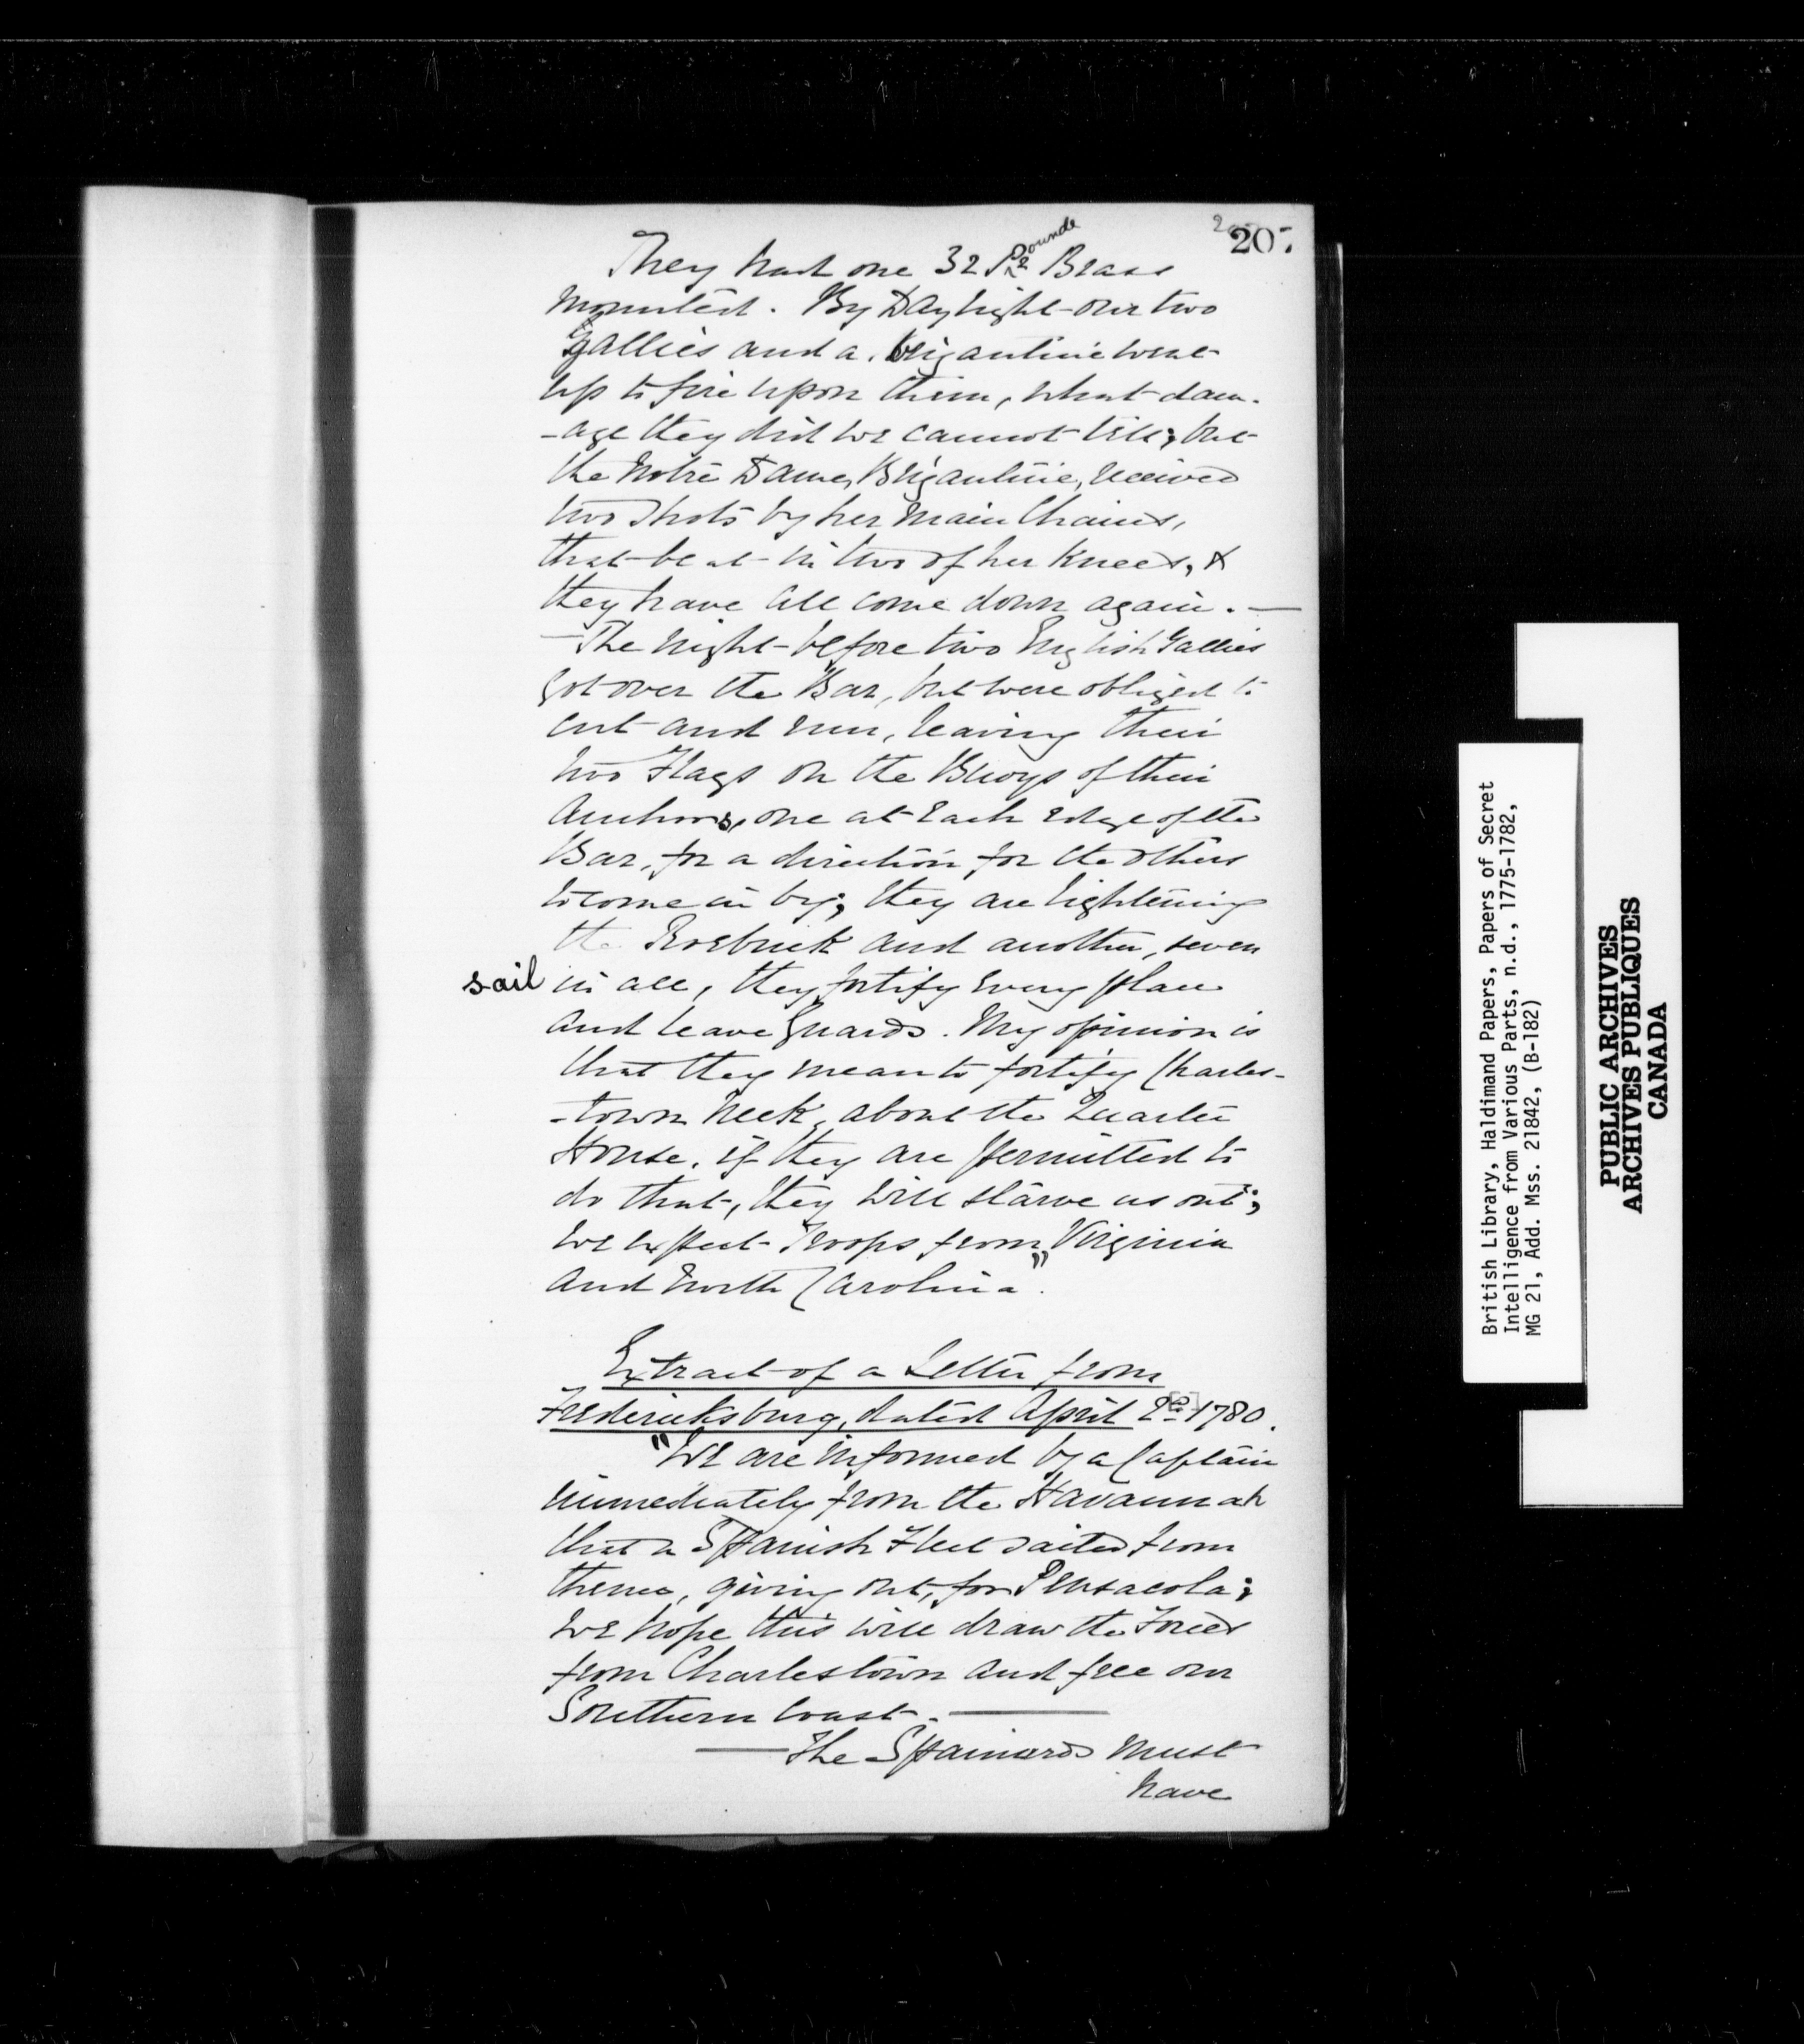 207
They had one 32 Pounder Brass
mounted. By Daylight our two
Gallies and a brigantine went
up to fire upon them, what dam-
-age they did we cannot tell; but
the Notre Dame, Brigantine, received
two Shots by her Main Chains,
that beat in two of her Knees, &
they have all come down again. —
— The night before two English Gallies
got over the Bar, but were obliged to
cut and run, leaving their
two Flags on the Buoys of their
Anchors, one at Each Edge of the
Bar, for a direction for the others
to come in by; they are lightening
the Roebuck and another, seven
sail in all, they fortify every place
and leave Guards. My opinion is
that they mean to fortify Charles-
-town Neck, about the Quarter
House, if they are permitted to
do that, they will starve us out;
we expect Troops from Virginia
and North Carolina".
Extract of a Letter from
Fredericksburg, dated April 1780.
"We are informed by a Captain
immediately from the Havannah
that a Spanish Fleet sailed from
thence, giving out, for Pensacola;
we hope this will draw the Forces
from Charlestown and free our
Southern Coast. —
— The Spainards must
have
British Library, Haldimand Papers, Papers of Secret
Intelligence from Various Parts, n.d., 1775-1782,
MG 21, Add. Mss. 21842, (B-182)
PUBLIC ARCHIVES
ARCHIVES PUBLIQUES
CANADA